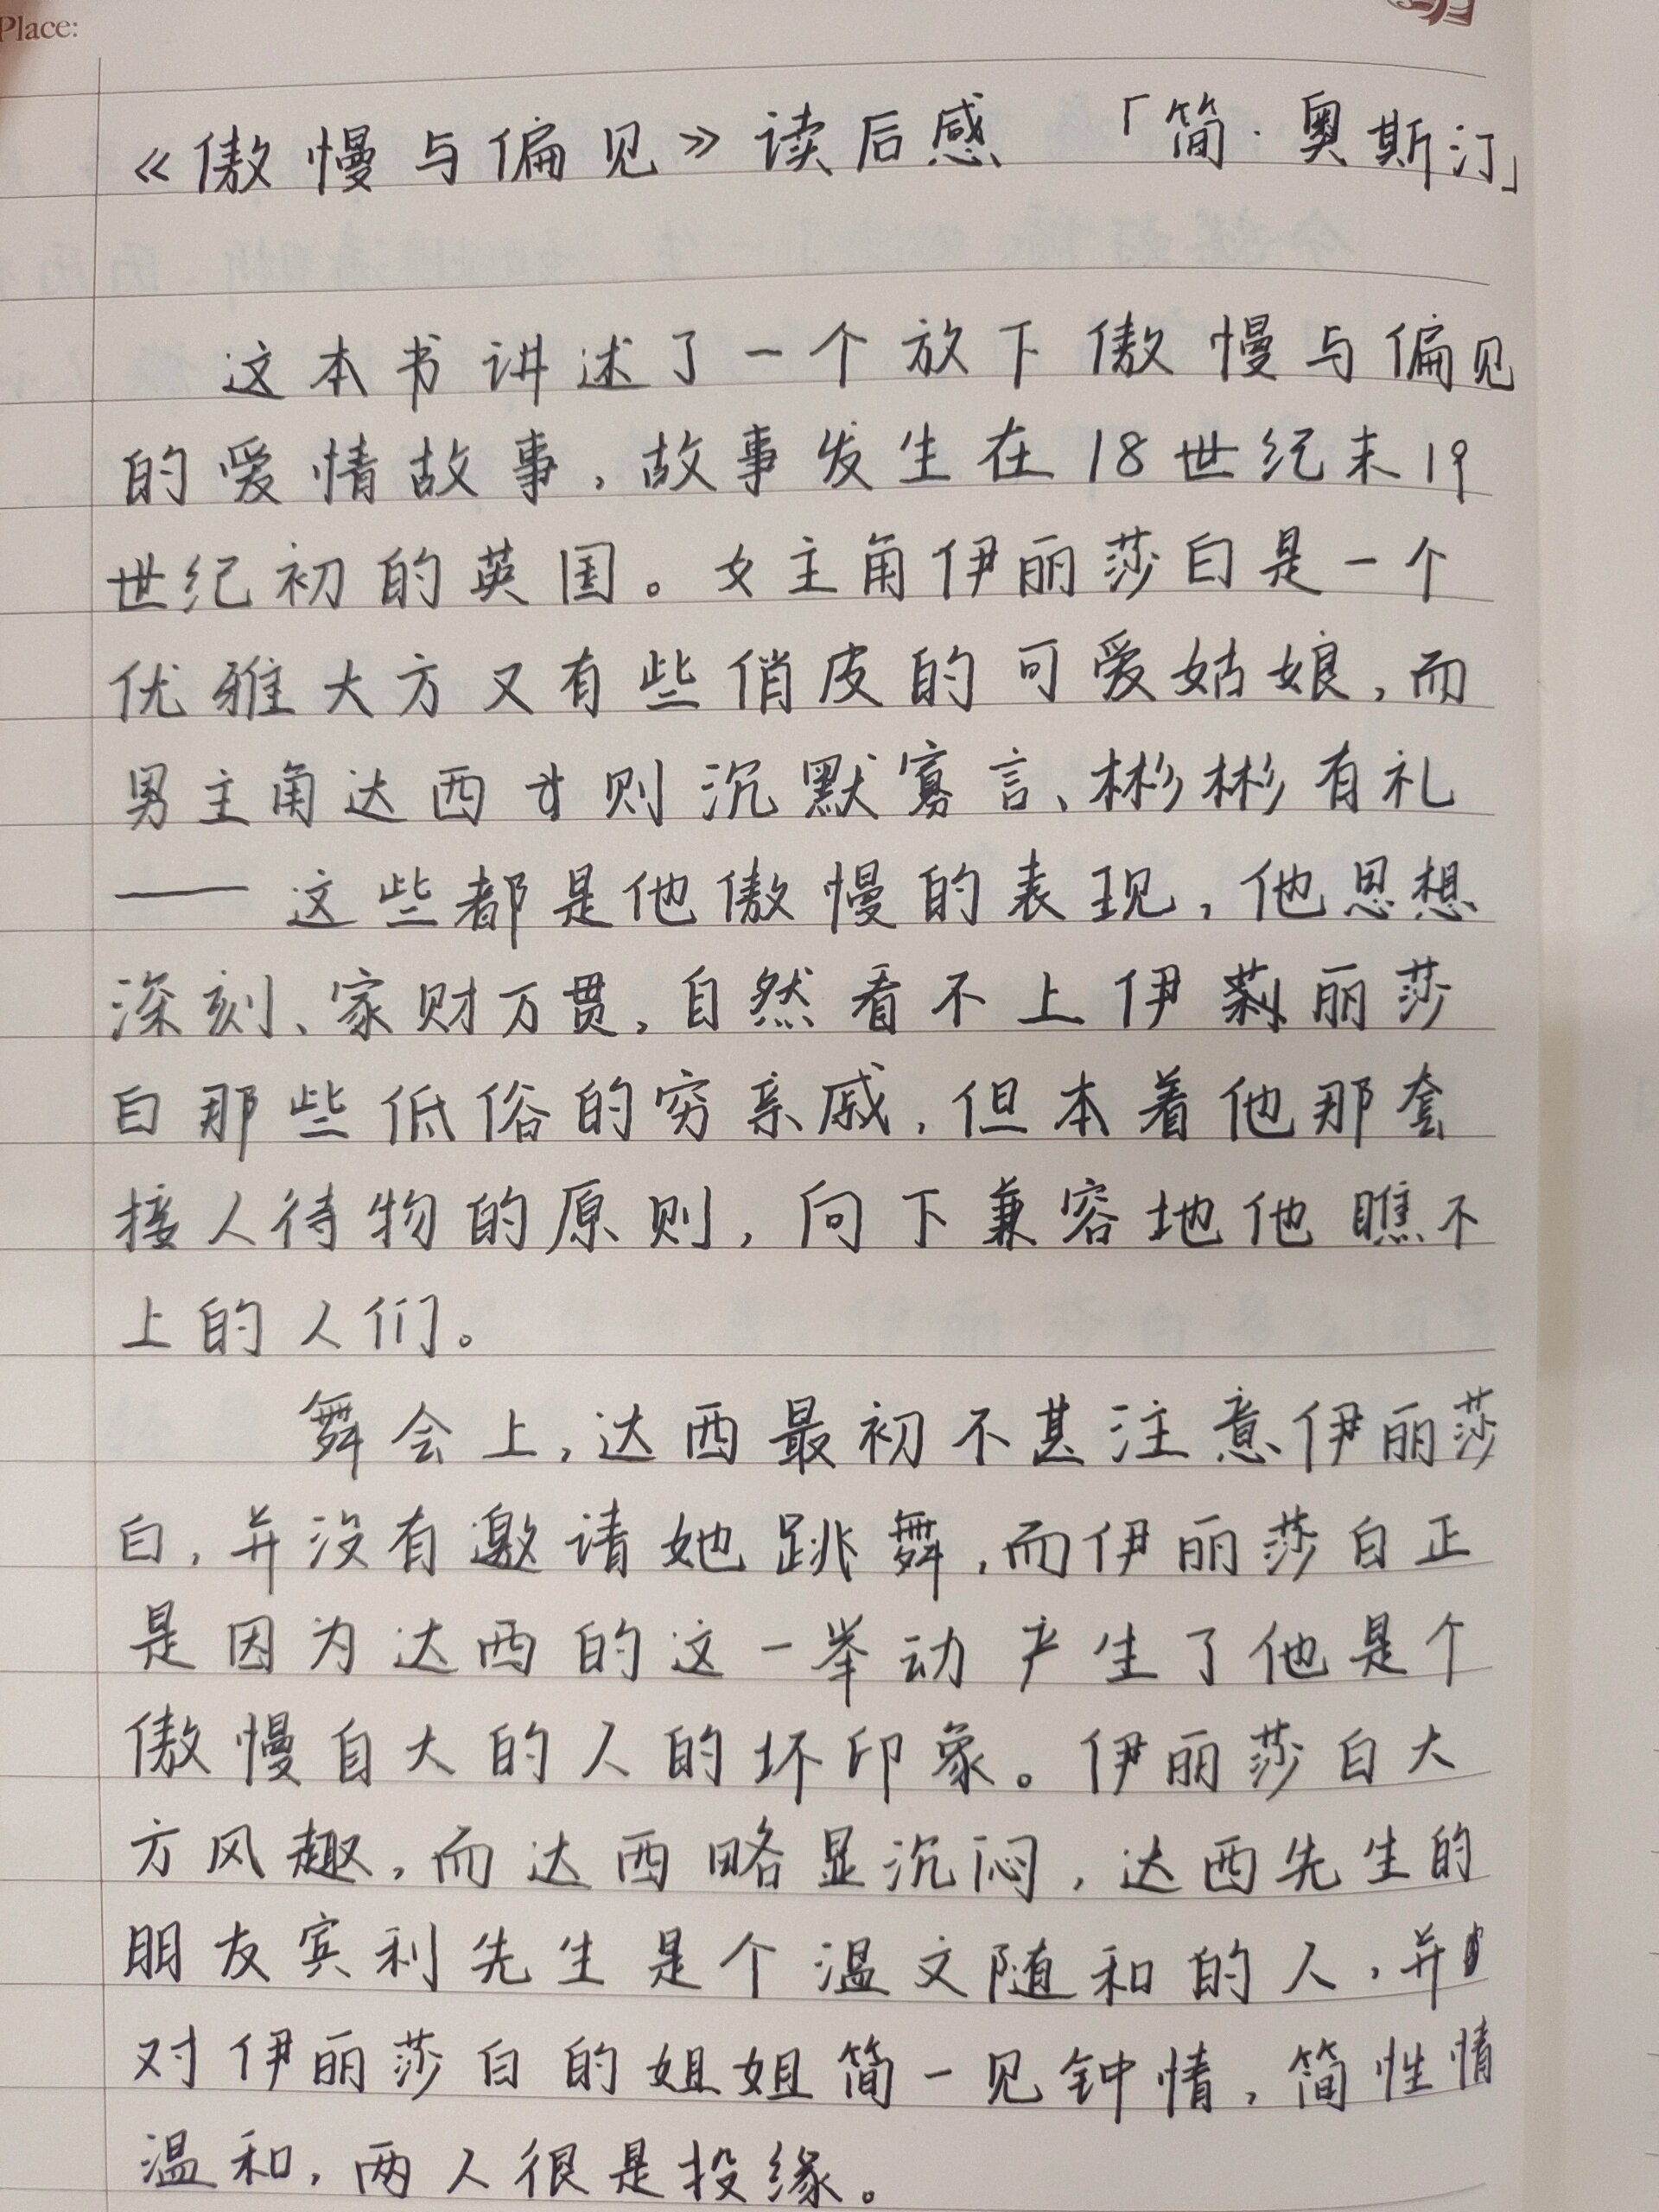 Place:
《傲慢与偏见》读后感 「简·奥斯汀」
这本书讲述了一个放下傲慢与偏见
的爱情故事,故事发生在18世纪末19
世纪初的英国。女主角伊丽莎白是一个
优雅大方又有些俏皮的可爱姑娘,而
男主角达西则沉默寡言、彬彬有礼
——这些都是他傲慢的表现,他思想
深刻、家财万贯,自然看不上伊丽莎
白那些低俗的穷亲戚,但本着他那套
接人待物的原则,向下兼容地他瞧不
上的人们。
舞会上,达西最初不甚注意伊丽莎
白,并没有邀请她跳舞,而伊丽莎白正
是因为达西的这一举动产生了他是个
傲慢自大的人的坏印象。伊丽莎白大
方风趣,而达西略显沉闷,达西先生的
朋友宾利先生是个温文随和的人,并
对伊丽莎白的姐姐简一见钟情,简性情
温和,两人很是投缘。